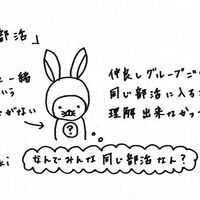 部活」
と一緒
いう
がない
?
仲良しグループご
同じ部活に入る
理解出来なかっ
ki
なんでみんな同じ部活なん?